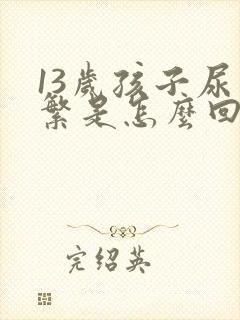 13歲孩子尿
繁是怎麼回
完紹英